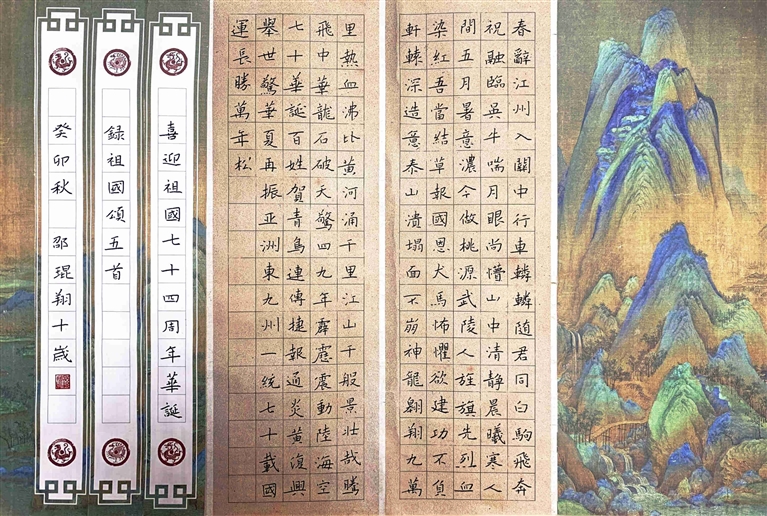 春辭江州入關中行車轔轔隨君同白駒飛奔
祝融臨吳牛喘月眼尚懵山中清靜晨曦寒人
間五月暑意濃今做桃源武陵人旌旗先烈血
染紅吾當結草報國恩犬馬怖懼欲建功不負
軒轅深造意泰山潰塌面不崩神龍翱翔九萬
里熱血沸比黃河涌千里江山千般景壯哉騰
飛中華龍石破天驚四九年霹靂震動陸海空
七十華誕百姓賀青鳥連傳捷報通炎黃復興
舉世驚華夏再振亞洲東九州一統七十載國
運長勝萬年松
喜迎祖國七十四周年華誕
録祖國頌五首
癸卯秋 邵琨翔十歲